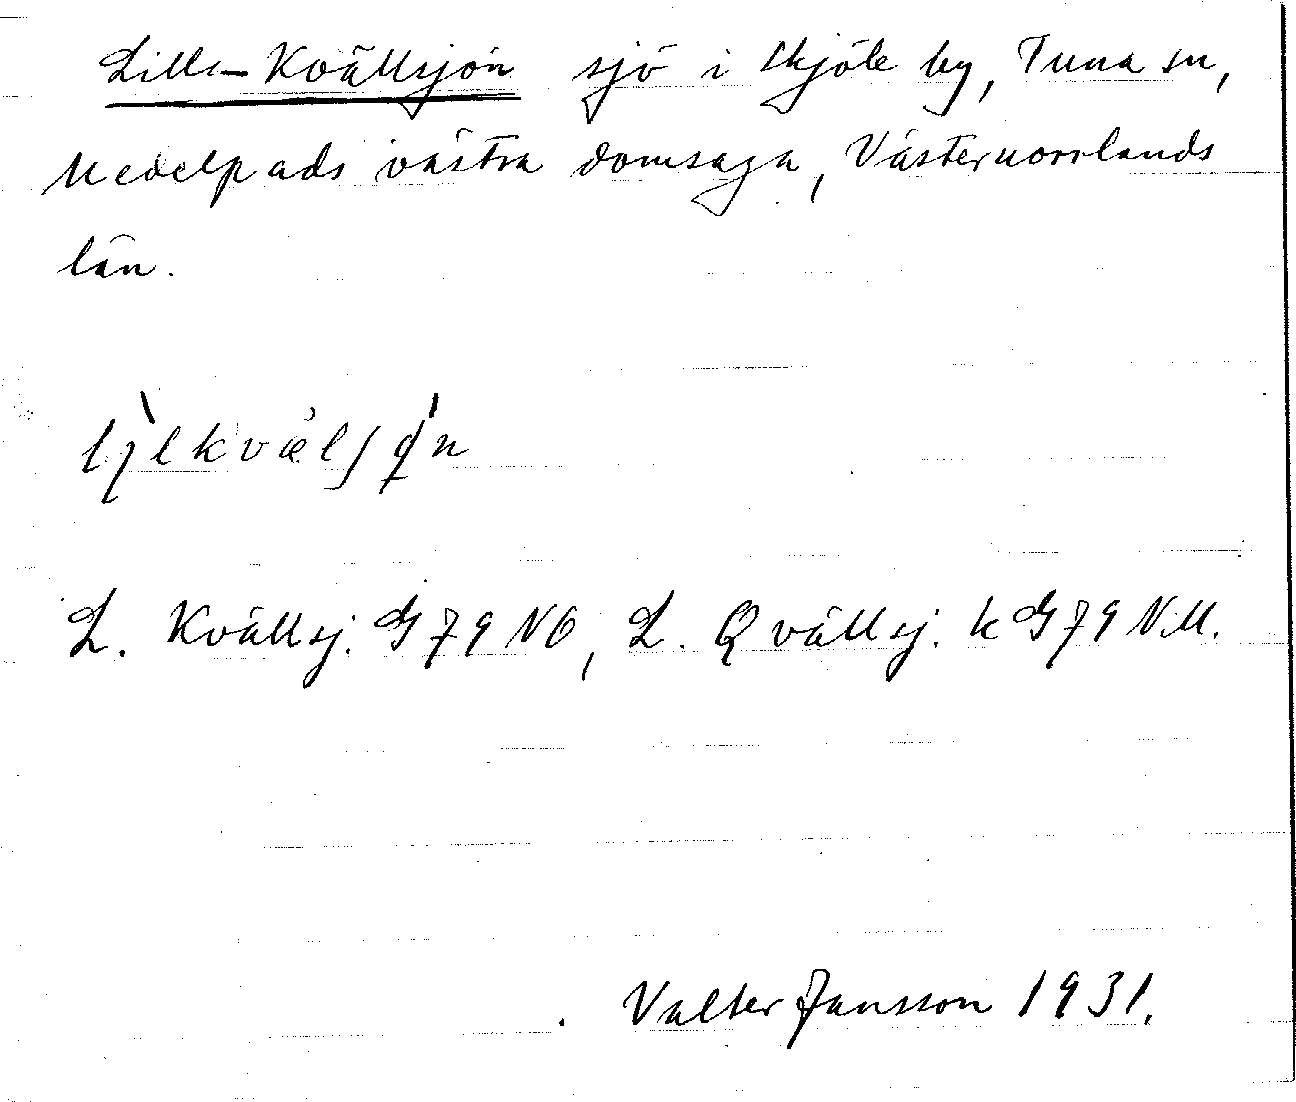 Lill-Kvällsjön sjö i Skjöle by, Tuna sn,
Medelpads västra domsaga, Västernorrlands
län.
L. Kvällsj. G79 NO, L. Qvällsj. k G79 NM.
Valter Jansson 1931.